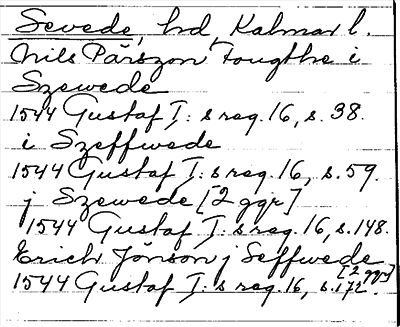 Sevede, hd, Kalmar l.
Nils Pärszon Fougthe i
Szewede
1544 Gustaf I: s reg. 16, s. 38.
i Szeffwede
1544 Gustaf I: s reg. 16, s. 59.
j Szewede [2 ggr]
1544 Gustaf I: s reg. 16, s. 148.
Erich Jönson j Seffwede
[2 ggr]
1544 Gustaf I: s reg. 16, s. 172.